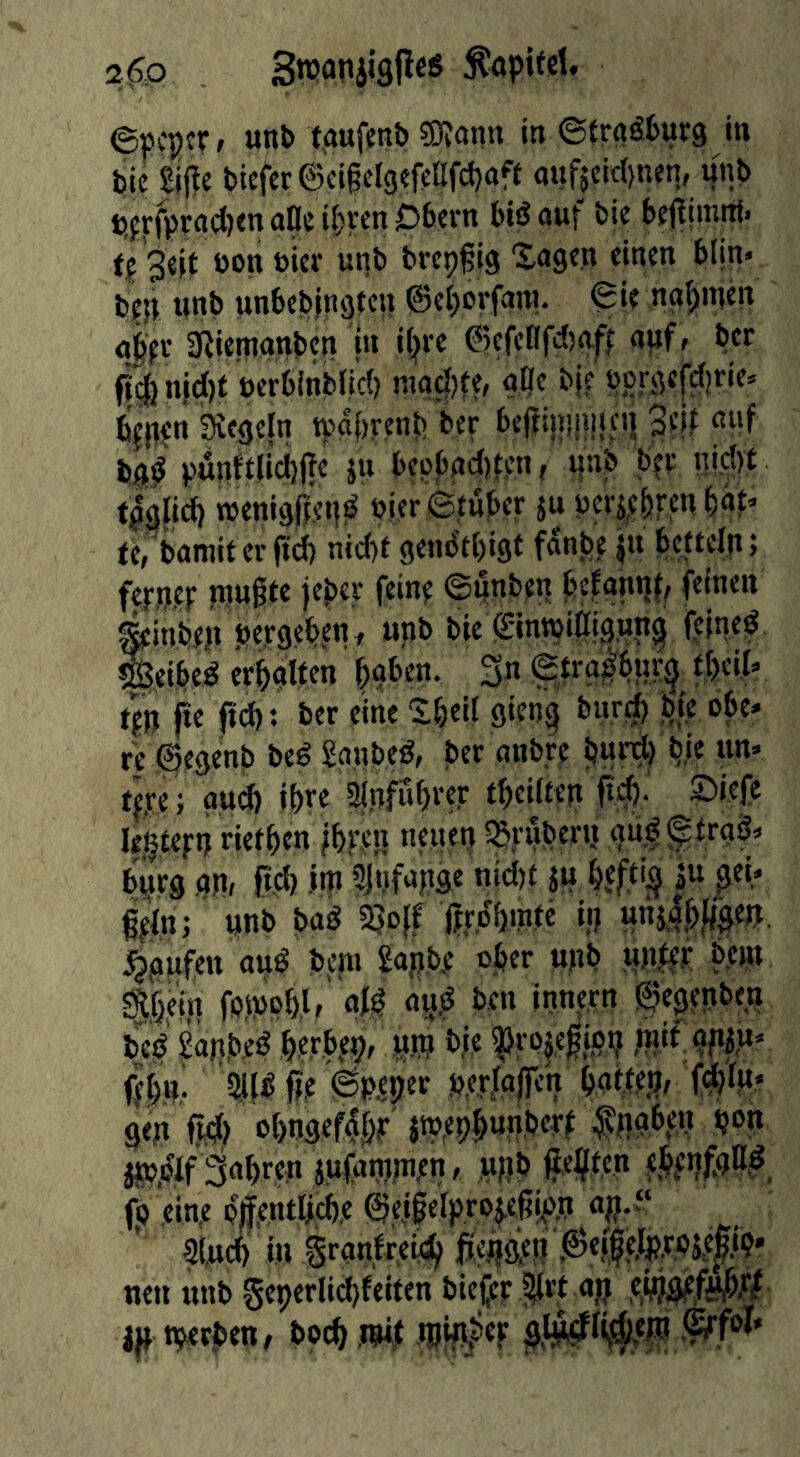 260 Zwanzigstes Kapitel.
Speyer, und tausend Mann in Straßburg in
die Liste dieser Geißelgesellschaft aufzeichnen, und
versprachen alle ihren Obern bis auf die bestimm-
te Zeit von vier und dreyßig Tagen einen blin-
den und unbedingten Gehorsam. Sie nahmen
aber Niemanden in ihre Gesellschaft auf, der
sich nicht verbindlich machte, alle die vorgeschrie-
benen Regeln während der bestimmten Zeit auf
das pünktlichste zu beobachten, und der nicht
täglich wenigstens vier Stüber zu verzehren hat-
te, damit er sich nicht genöthigt fände zu betteln;
ferner mußte jeder seine Sünden bekannt, seinen
Feinden vergeben, und die Einwilligung seines
Weibes erhalten haben. In Straßburg theil-
ten sie sich: der eine Theil gieng durch die obe-
re Gegend des Landes, der andre durch die un-
tere; auch ihre Anführer theilten sich. Diese
letztern riethen ihren neuen Brüdern aus Stras-
burg an, sich im Anfange nicht zu heftig zu gei-
ßeln; und das Volk ströhmte in unzähligen
Haufen aus dem Lande ober und unter dem
Rhein sowohl, als aus den innern Gegenden
des Landes herbey, um die Prozeßion mit anzu-
sehn. Als sie Speyer verlassen hatten, schlu-
gen sich ohngefähr zweyhundert Knaben von
zwölf Jahren zusammen, und stellten ebenfalls
so eine öffentliche Geißelprozeßion an.“
Auch in Frankreich fiengen Geißelprozeßio-
nen und Feyerlichkeiten dieser Art an eingeführt
zu werden, doch mit minder glücklichem Erfol-